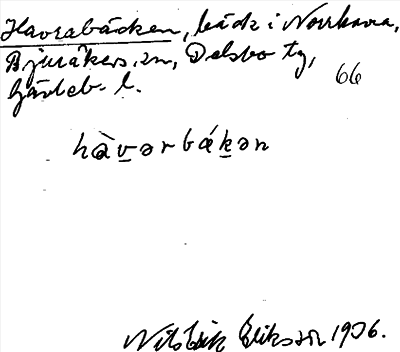 Havrabäcken, bäck i Norrhavra,
Bjuråkers sn, Delsbo tg,
Gävleb. l.
66
hàvərbákən
Nils Erik Eriksson 1936.